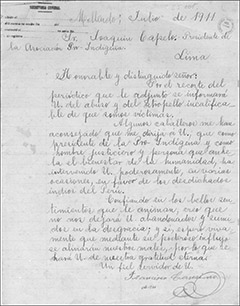 Mollendo, Julio de 1911
Sr. Joaquín Capelo. Presidente de la Asociación Pro-Indígena
Lima
Honorable y distinguido señor:
Por el recorte del periódico que le adjunto se informará U. del abuso y del atropello incalificable de que somos víctimas.
Algunos caballeros me han aconsejado que me dirija a U., que como presidente de la Pro-Indígena y como hombre justiciero y persona que anhela el bienestar de la humanidad, ha intervenido U. poderosamente, en varias ocasiones, en favor de los desdichados indios del Perú.
Confiando en los bellos sentimientos que le animan, creo que no nos dejará U. abandonados y sumidos en la desgracia; y sí, espero vivamente que mediante su poderoso influjo se aliviarán nuestros males, por lo que se hará U. de nuestra gratitud eterna.
Un fiel servidor de U.